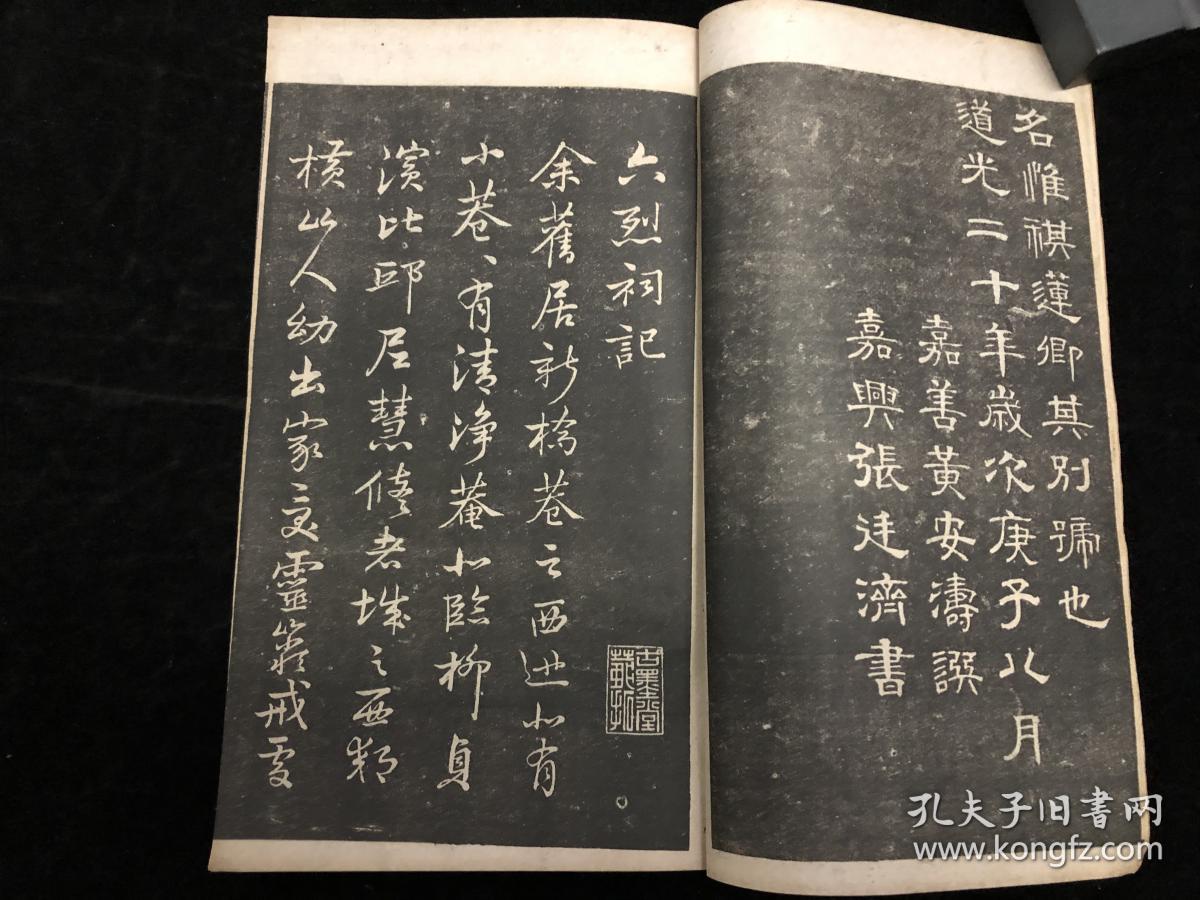 名惟祺蓮卿其別號也
道光二十年歲次庚子八月
嘉善黃安濤譔
嘉興張廷濟書
六烈祠記
余舊居新橋巷之西迤北有
小巷、有清淨菴北臨柳貞
濱比邱尼慧修老城之西鄰
橫山人幼出家受靈巖戒
孔夫子旧书网
www.kongfz.com